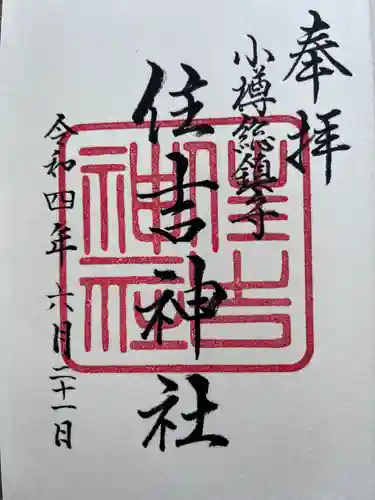 奉拝
小樽総鎮守
住吉神社
住吉神社
令和四年 六月二十一日